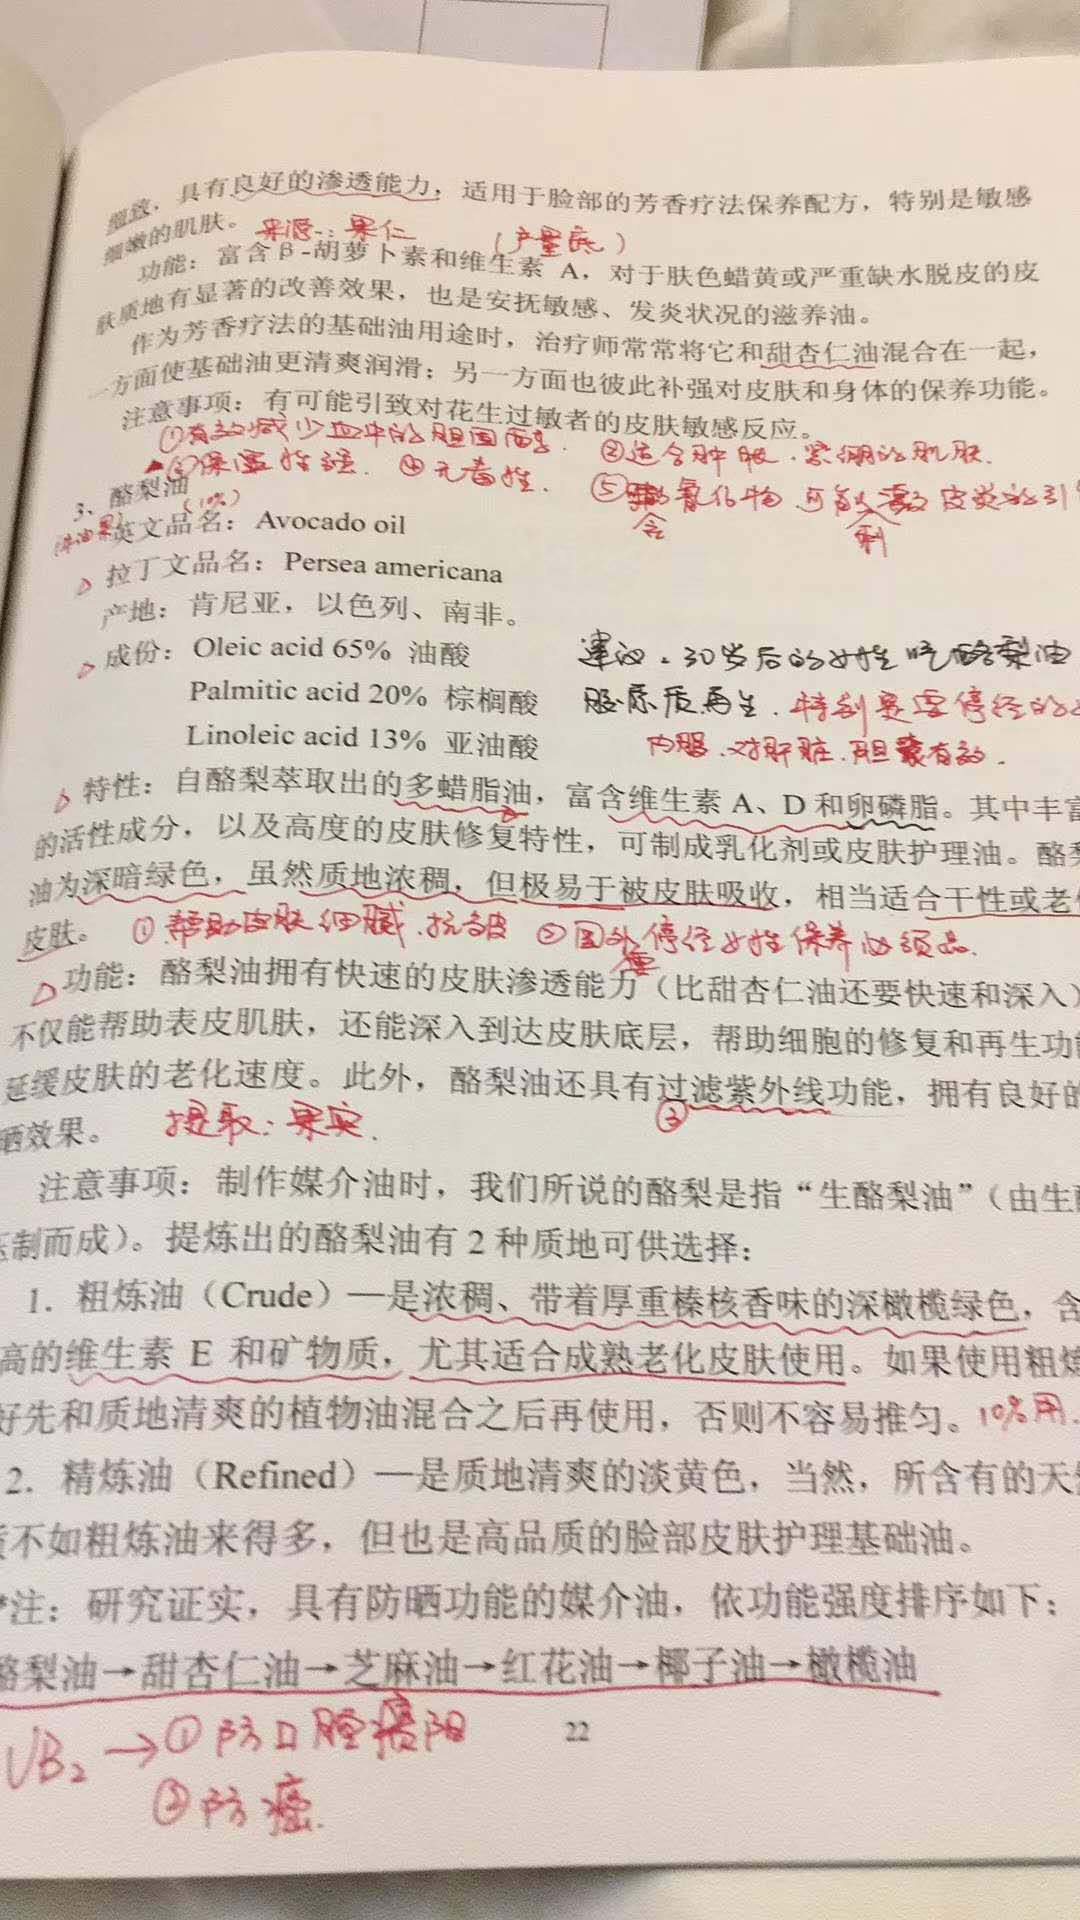 细致，具有良好的渗透能力，适用于脸部的芳香疗法保养配方，特别是敏感
细嫩的肌肤。 来源：果仁 （产量底）
功能：富含β-胡萝卜素和维生素 A，对于肤色蜡黄或严重缺水脱皮的皮
肤质地有显著的改善效果，也是安抚敏感、发炎状况的滋养油。
作为芳香疗法的基础油用途时，治疗师常常将它和甜杏仁油混合在一起，
一方面使基础油更清爽润滑；另一方面也彼此补强对皮肤和身体的保养功能。
注意事项：有可能引致对花生过敏者的皮肤敏感反应。
①有效减少血中的胆固醇. ②适合肿胀.紧绷的肌肤.
③保湿性强. ④无毒性. ⑤含氧化物 可 刺激 皮炎的引
3、酪梨油 (10%)
英文品名：Avocado oil
拉丁文品名：Persea americana
产地：肯尼亚，以色列、南非。
成份：Oleic acid 65% 油酸
建议.30岁后的女性吃酪梨油
Palmitic acid 20% 棕榈酸
胶原质再生.特别是要停经的
Linoleic acid 13% 亚油酸
内服.对肝脏.胆囊有效.
特性：自酪梨萃取出的多蜡脂油，富含维生素 A、D 和卵磷脂。其中丰富
的活性成分，以及高度的皮肤修复特性，可制成乳化剂或皮肤护理油。酪梨
油为深暗绿色，虽然质地浓稠，但极易于被皮肤吸收，相当适合干性或老化
皮肤。 ①帮助皮肤细腻.抗皱 ②国外停经女性保养必须品.
功能：酪梨油拥有快速的皮肤渗透能力（比甜杏仁油还要快速和深入）
不仅能帮助表皮肌肤，还能深入到达皮肤底层，帮助细胞的修复和再生功能
延缓皮肤的老化速度。此外，酪梨油还具有过滤紫外线功能，拥有良好的
晒效果。 提取：果实. ③
注意事项：制作媒介油时，我们所说的酪梨是指“生酪梨油”（由生酪
压制而成）。提炼出的酪梨油有 2 种质地可供选择：
1. 粗炼油（Crude）—是浓稠、带着厚重榛核香味的深橄榄绿色，含
高的维生素 E 和矿物质，尤其适合成熟老化皮肤使用。如果使用粗炼
好先和质地清爽的植物油混合之后再使用，否则不容易推匀。10%用.
2. 精炼油（Refined）—是质地清爽的淡黄色，当然，所含有的天然
质不如粗炼油来得多，但也是高品质的脸部皮肤护理基础油。
*注：研究证实，具有防晒功能的媒介油，依功能强度排序如下：
酪梨油→甜杏仁油→芝麻油→红花油→椰子油→橄榄油
VB₂→①防口腔
22
②防癌.